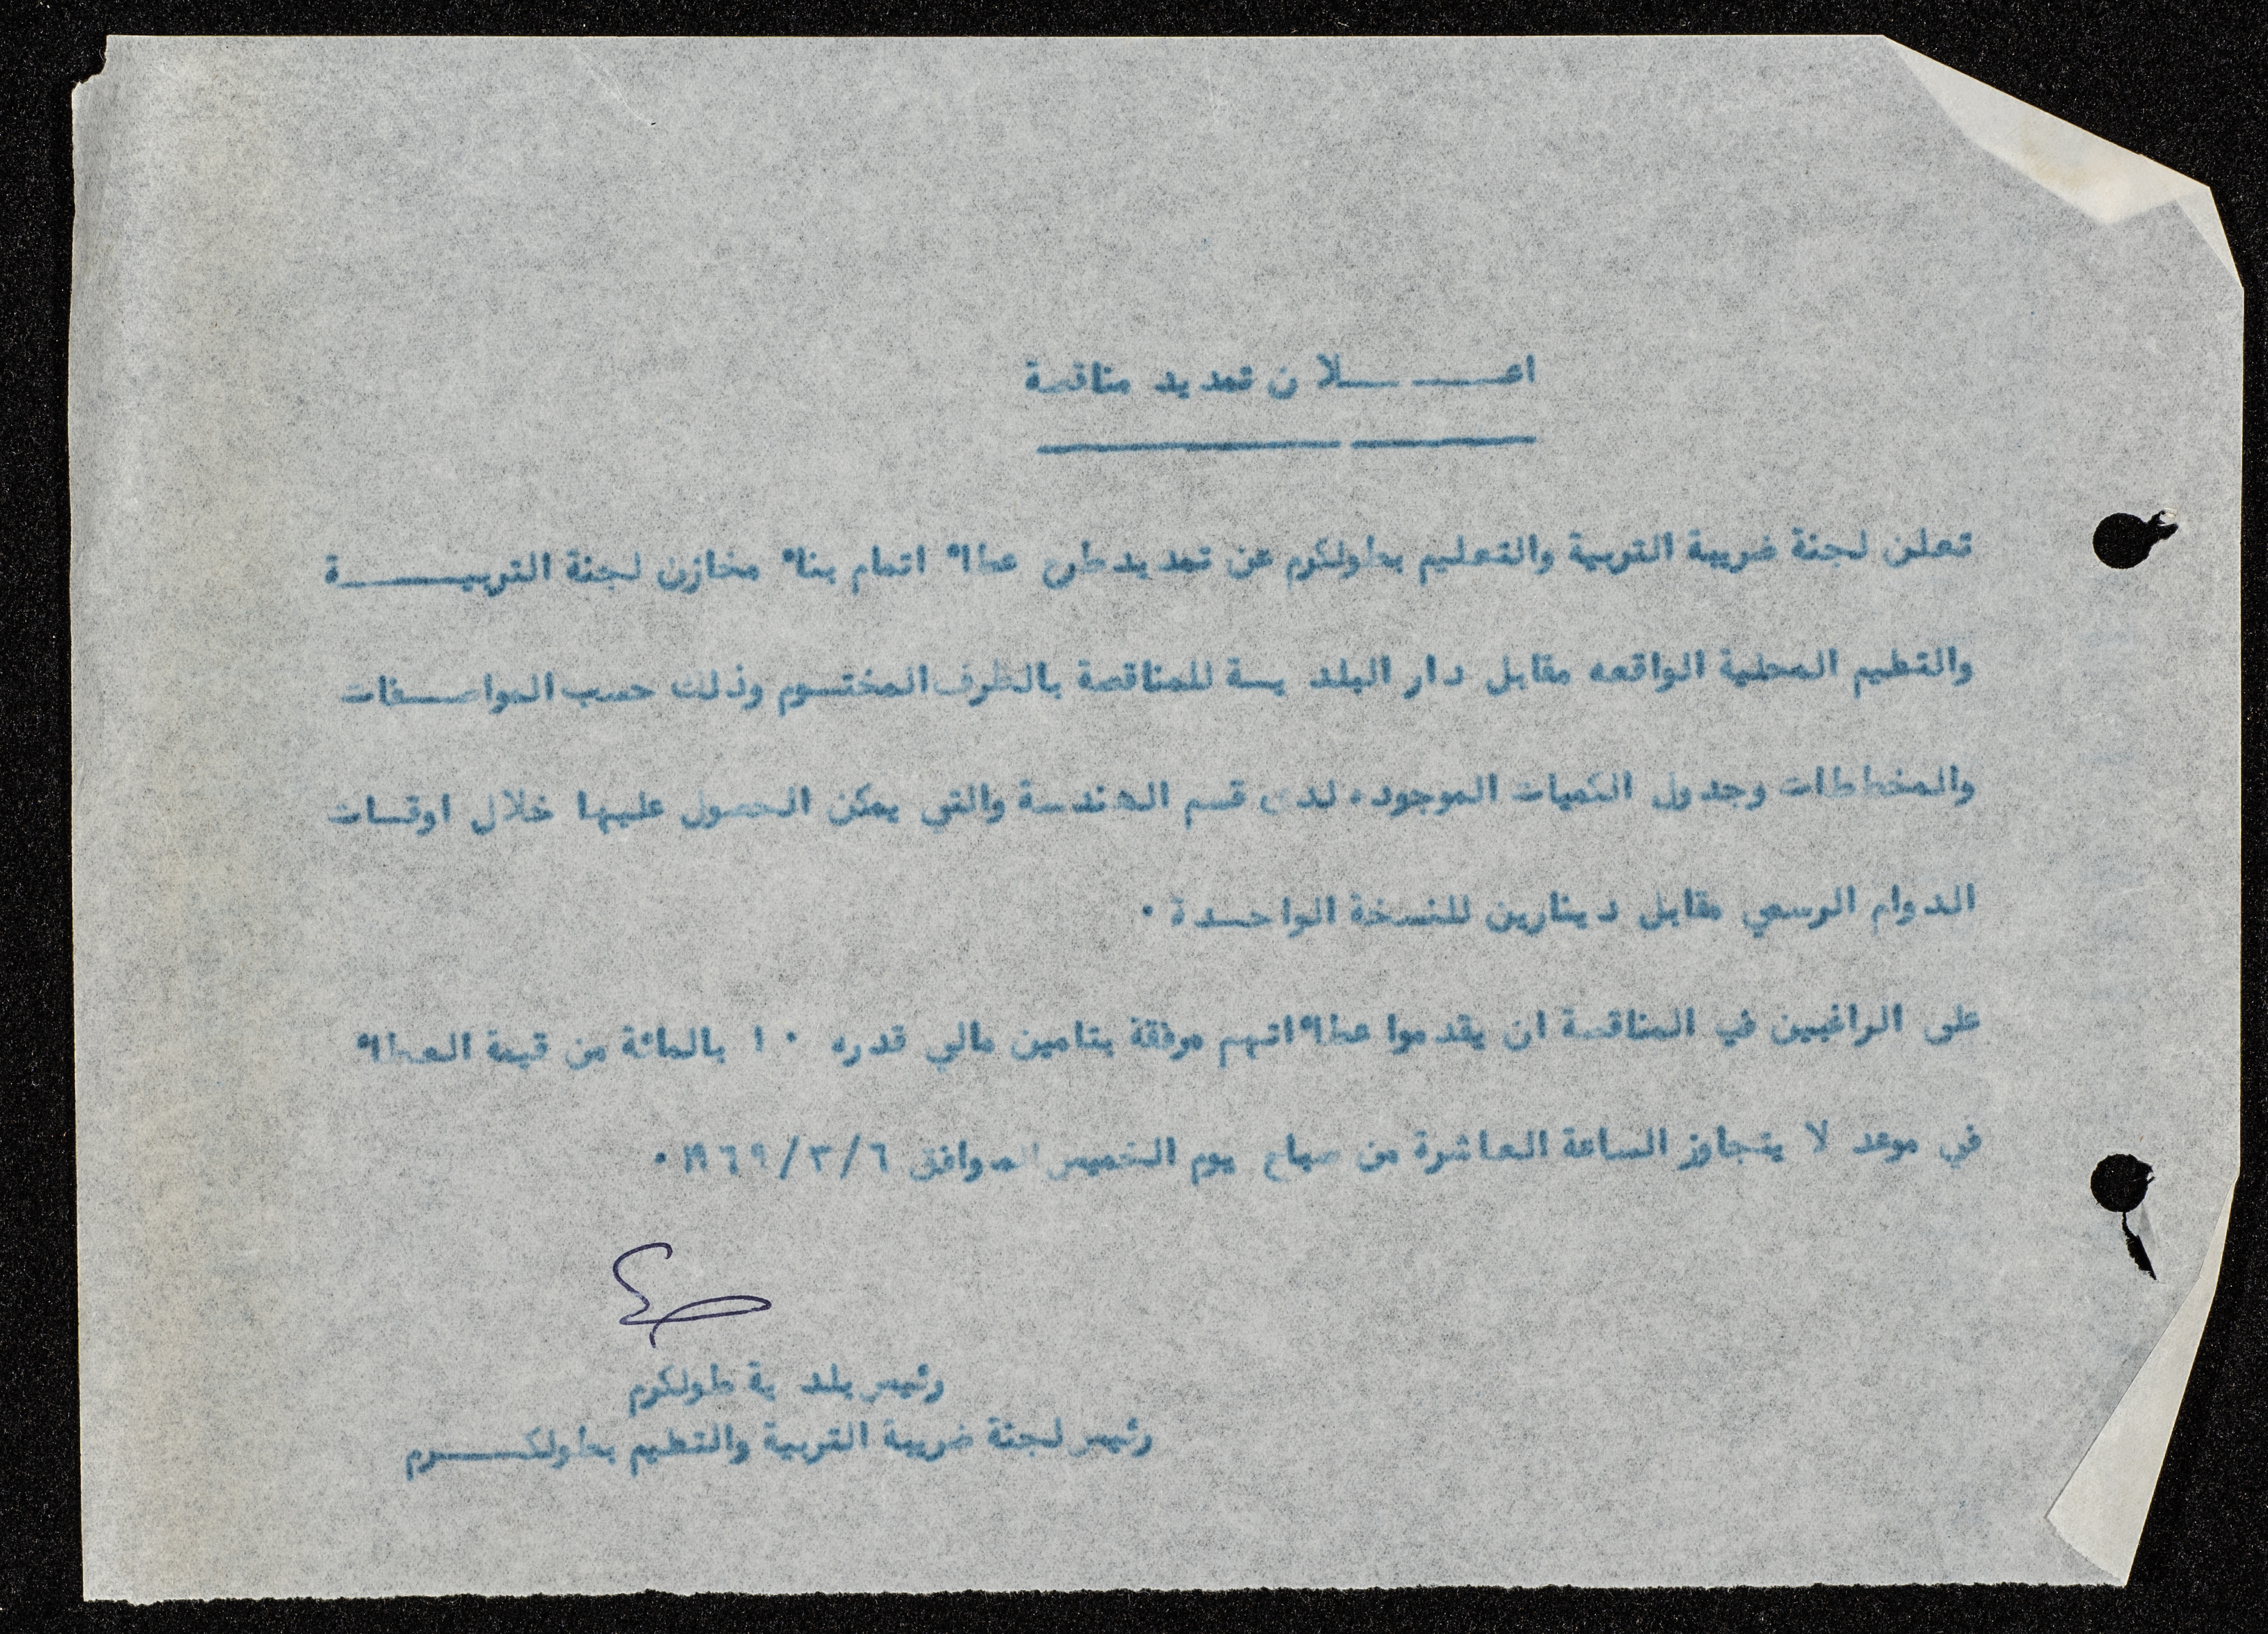 اعـــــــلان تمديد مناقصة
تعلن لجنة ضريبة التربية والتعليم بطولكرم عن تمديد طرح عطاء اتمام بناء مخازن لجنة التربيـــــــة
والتعليم المحلية الواقعه مقابل دار البلديـة للمناقصة بالظرف المختـوم وذلك حسب المواصـفات
والمخططات وجدول الكميات الموجوده لدى قسم الهندسة والتي يمكن الحصول عليها خلال اوقـات
الدوام الرسمي مقابل دينارين للنسخة الواحـدة ٠
على الراغبين في المناقصة ان يقدموا عطاءاتهم مرفقة بتامين مالي قدره ١٠ بالمائة من قيمة العطاء
في موعد لا يتجاوز الساعة العاشرة من صباح يوم الخميس الموافق ٦/٣/١٩٦٩ ٠
رئيس بلدية طولكرم
رئيس لجنة ضريبة التربية والتعليم بطولكــــرم